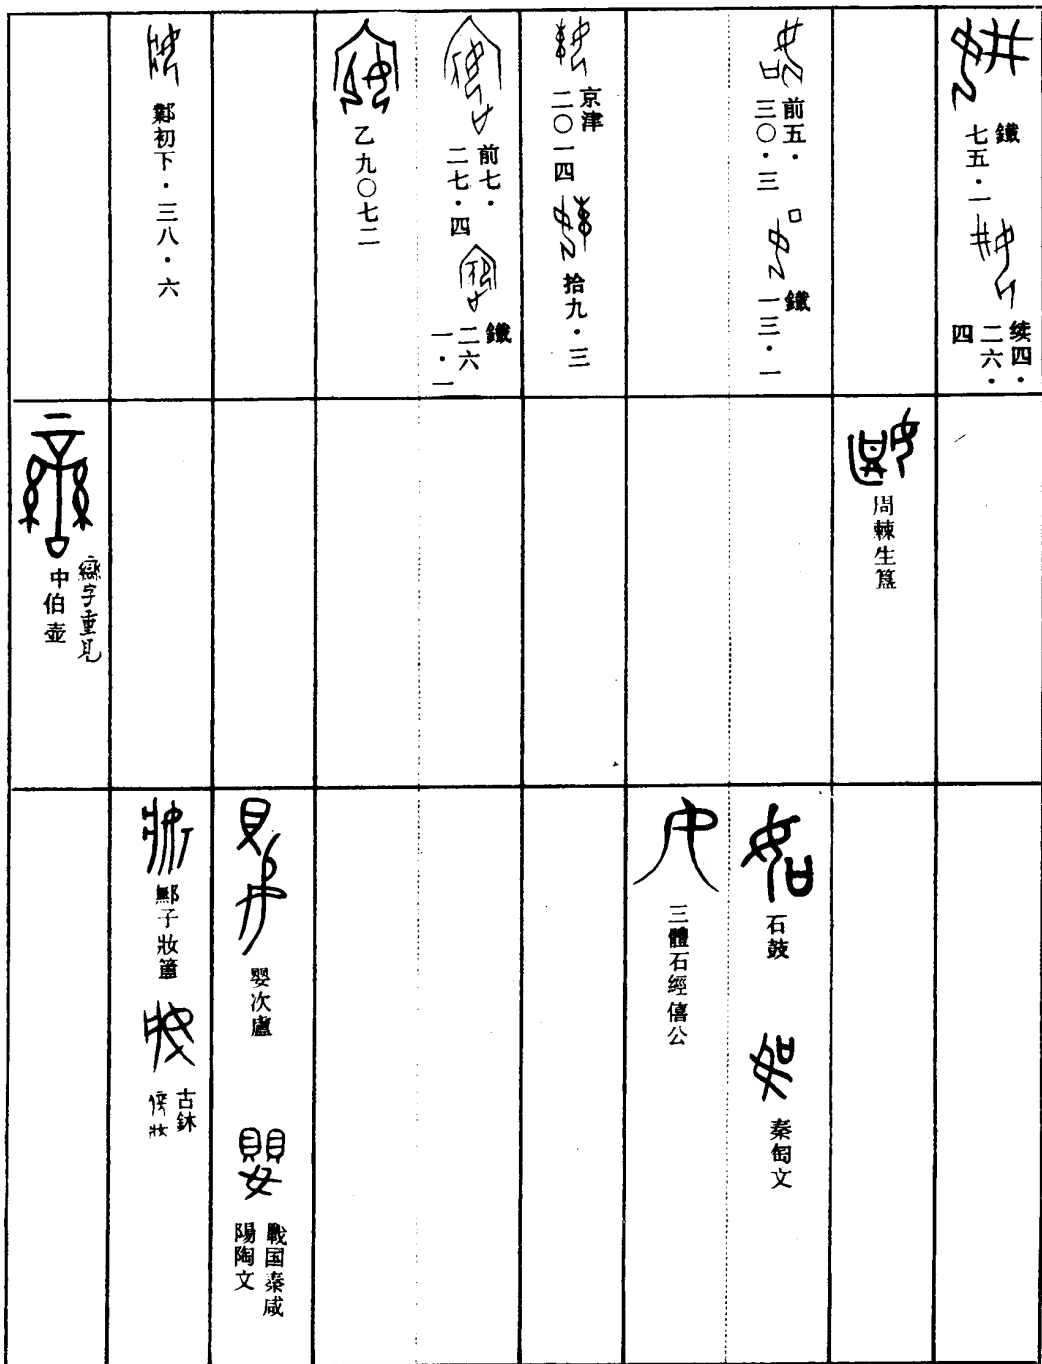 鐵
七五·一
续四·
二六·
四
前五·
三〇·三
鐵
一三·一
京津
二〇一四
拾九·三
前七·
二七·四
鐵
二六
一·一
乙九〇七二
鄴初下·三八·六
周棘生簋
䜌字重見
中伯壺
石鼓
秦匋文
三體石經僖公
嬰次盧
戰国秦咸
陽陶文
鄦子妝簠
古鉥
妝